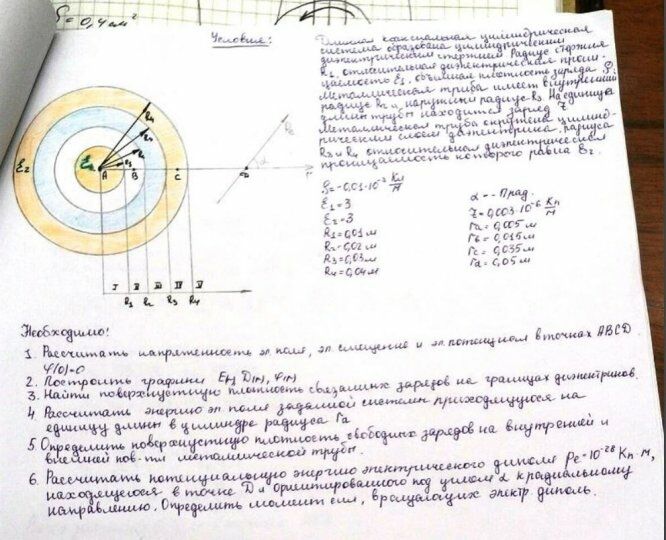 S = 0,4 см²
Условие:
Длинная коаксиальная цилиндрическая
система образована цилиндрическим
диэлектрическим стержнем радиуса стержня
R1, относительная диэлектрическая прони-
цаемость ε1, объёмная плотность заряда ρ.
Металлическая труба имеет внутренний
радиус R2 и наружный радиус R3. На единицу
длины трубы находится заряд τ
Металлическая труба окружена цилинд-
рическим слоем диэлектрика, радиуса
R3 и R4, относительная диэлектрическая
проницаемость которого равна ε2.
R4
ε2 ε1
A B C D α r
ρ = -0,01·10⁻² Кл/м
ε1 = 3
ε2 = 3
R1 = 0,01 м
R2 = 0,02 м
R3 = 0,03 м
R4 = 0,04 м
α -- Прад.
τ = 0,003·10⁻⁶ Кл/м
ra = 0,005 м
rb = 0,015 м
rc = 0,035 м
rd = 0,05 м
I II III IV V
R1 R2 R3 R4
Необходимо!
1. Рассчитать напряженность эл. поля, эл. смещение и эл. потенциал в точках ABCD.
φ(0)=0
2. Построить графики E(r), D(r), φ(r)
3. Найти поверхностную плотность связанных зарядов на границах диэлектриков.
4 Рассчитать энергию эл поля заданной системы приходящуюся на
единицу длины в цилиндре радиуса
5. Определить поверхностную плотность свободных зарядов на внутренней и
внешней пов-ти металлической трубы.
6. Рассчитать потенциальную энергию электрического диполя pe=10⁻²⁸ Кл·м,
находящегося в точке D и ориентированного под углом α к радиальному
направлению. Определить момент сил, вращающих электр. диполь.